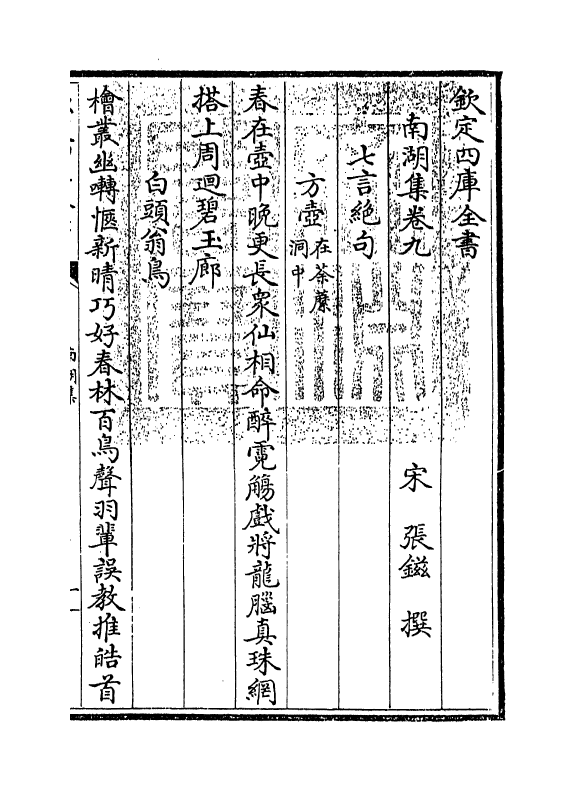 欽定四庫全書
南湖集卷九
宋 張鎡 撰
七言絶句
方壺在荼䕷洞中
春在壺中晚更長衆仙相命醉霓觴戲將龍腦真珠網
搭上周迴碧玉廊
白頭翁鳥
檜叢幽囀愜新晴巧好春林百鳥聲羽輩誤教推皓首
南湖集
一